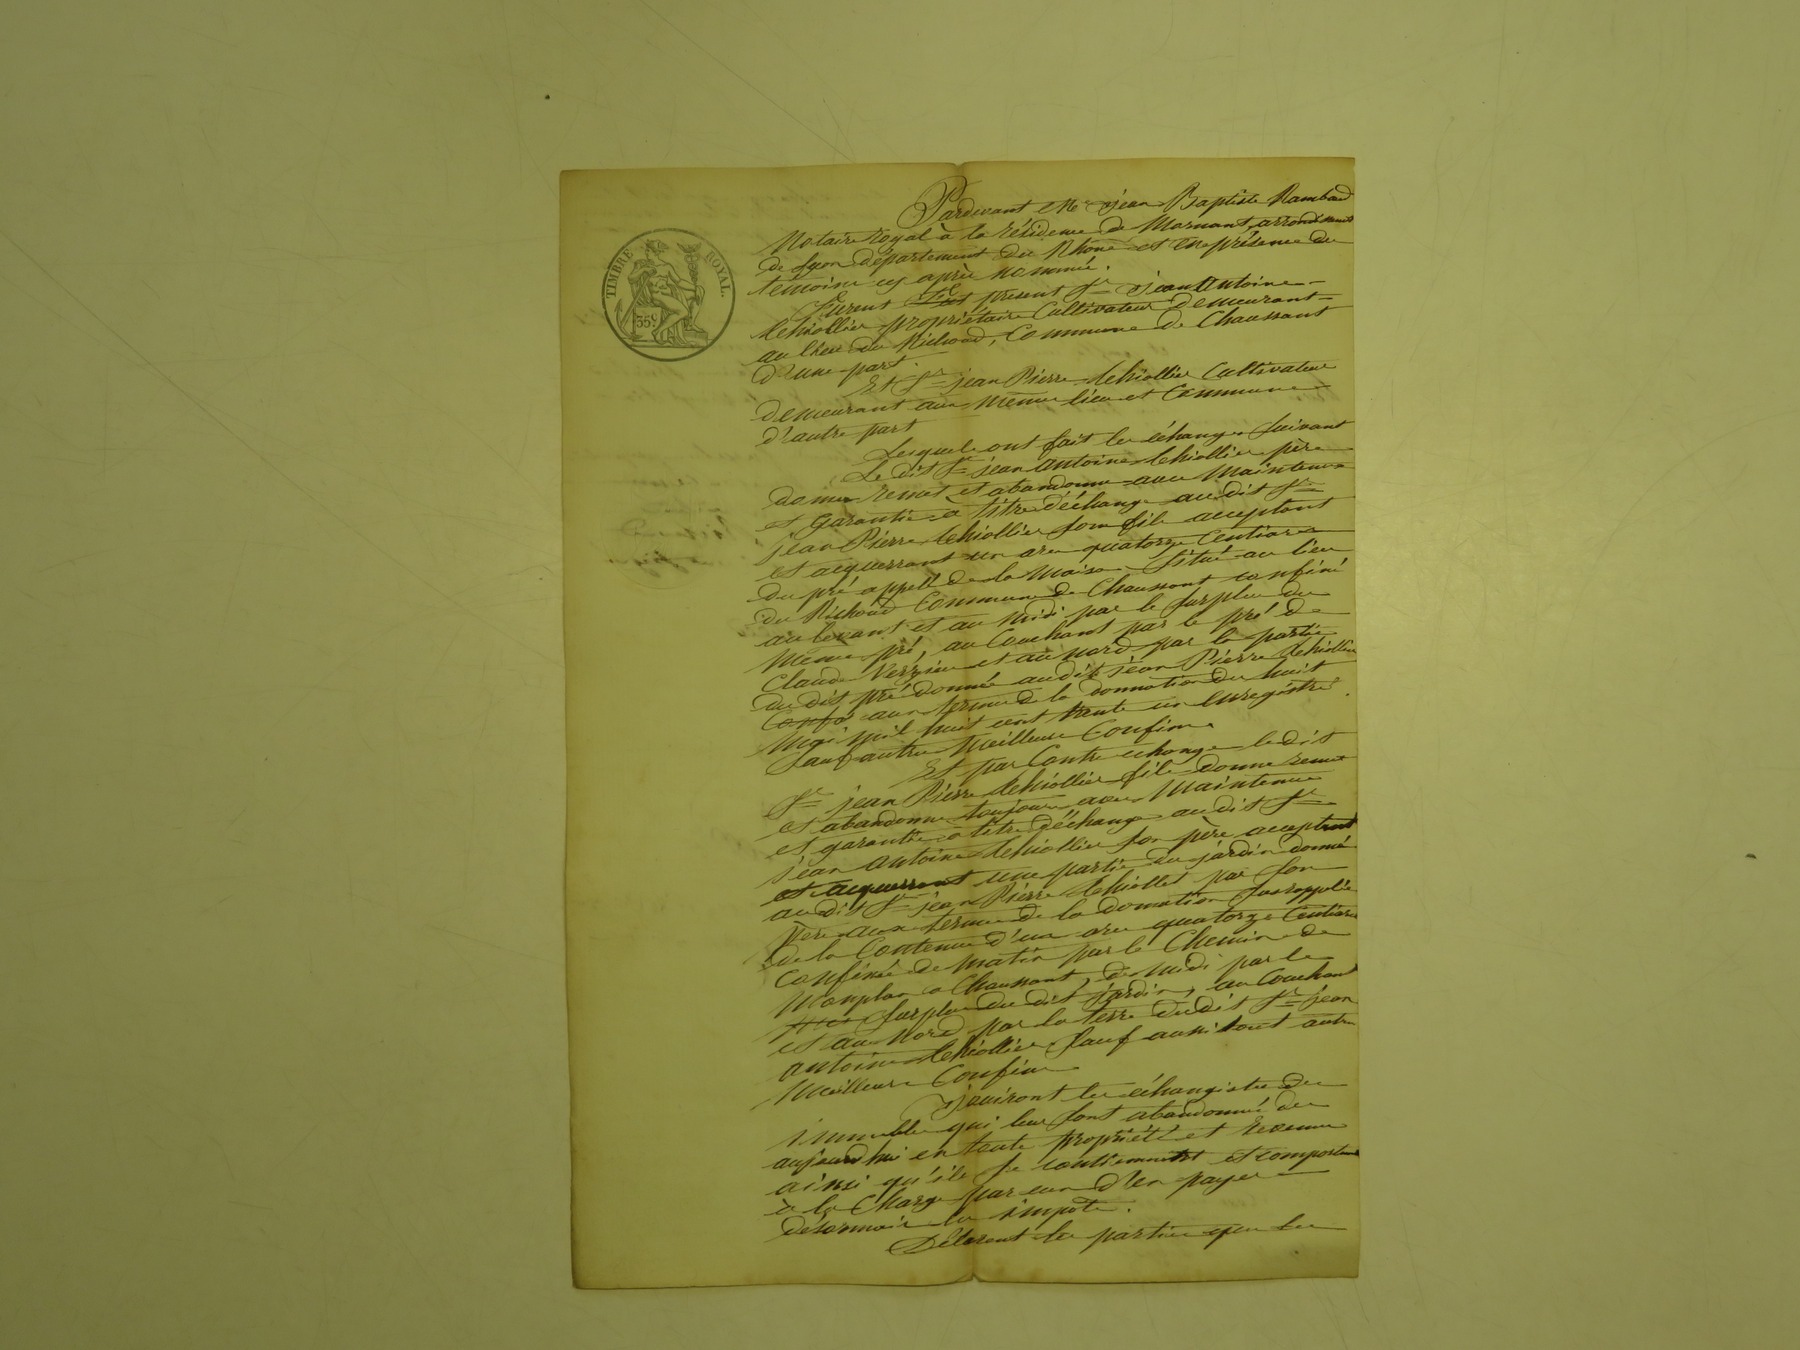 TIMBRE ROYAL.
35c
Pardevant Me jean Baptiste Rambaud
Notaire royal à la résidence de Mornant, arrondissement
de Lyon département du Rhône et en présence des
témoins cy après nommés.
Furent present Sr jean Antoine
Propriétaire Cultivateur demeurant
au lieu du Richoud, Commune de Chaussant
d'une part.
Et Sr jean Pierre Cultivateur
demeurant aux mêmes lieu et Commune
d'autre part
Lesquels ont fait les échanges suivant
Le dit Sr jean Antoine père
donne, remet et abandonne avec Maintenue
et garantie à titre d'échange audit Sr
jean Pierre son fils acceptant
et acquerrant un are quatorze Centiares
du pré appellé de la Maison situé au lieu
du Richoud Commune de Chaussant confiné
au levant et au midi par le surplus du
même pré, au Couchant par le pré de
Claude et au nord par la partie
du dit pré donnée audit jean Pierre
aux termes de la donnation du huit
Mai mil huit cent trente un enregistré.
sauf autres meilleurs Confins
Et par Contre echange ledit
Sr jean Pierre fils donne remet
et abandonne toujours avec Maintenue
et garantie à titre d'échange audit Sr
jean Antoine son père acceptant
et acquerrant une partie du jardin donné
audit Sr jean Pierre par son
père aux termes de la donnation susrappelée
de la Contenue d'un are quatorze Centiares
confinée de matin par le Chemin de
à Chaussant, de midi par le
surplus du dit jardin, au Couchant
et au Nord par la terre dudit Sr jean
Antoine sauf aussi tout autre
Meilleurs Confins
jouiront les échangistes des
immeubles qui leur sont abandonnés dès
aujourd'hui en toute propriété et
ainsi qu'ils se contiennent et comportent
à la Charge par eux d'en payer
désormais les impôts.
Déclarent les parties que les